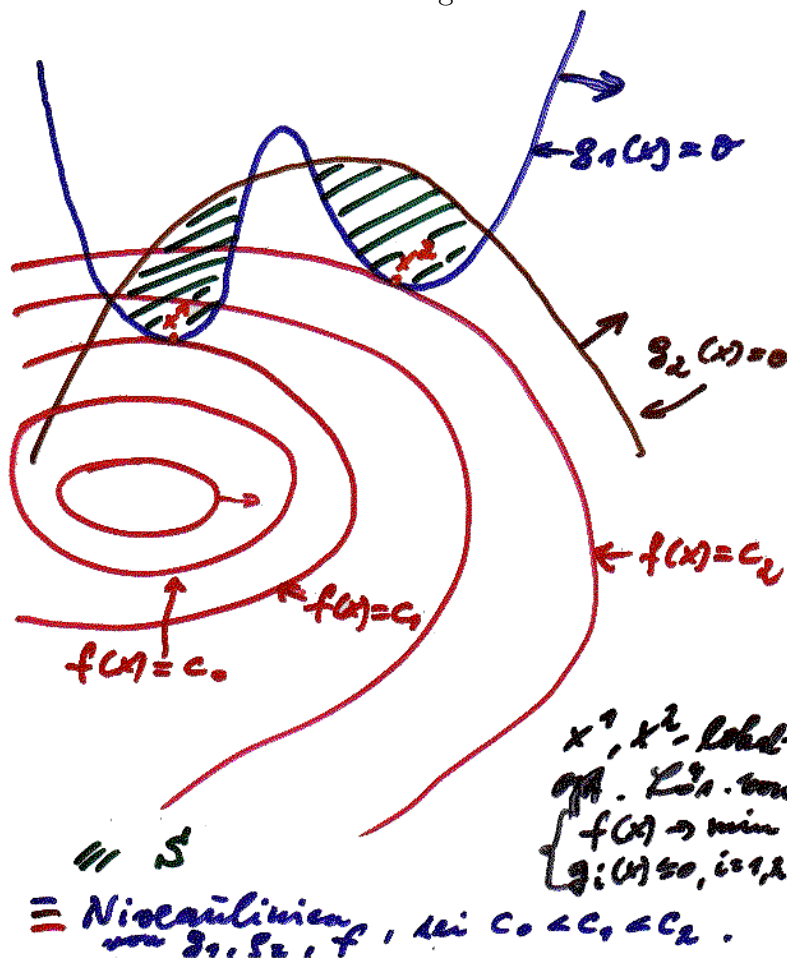 g
g₁(x) = 0
x²
x¹
g₂(x) = 0
f(x) = c₂
f(x) = c₁
f(x) = c₀
x¹, x² - lokal
opt. Lös. von
f(x) → min
gᵢ(x) ≤ 0, i=1,2
S
Niveaulinien
von g₁, g₂, f, sei c₀ < c₁ < c₂.